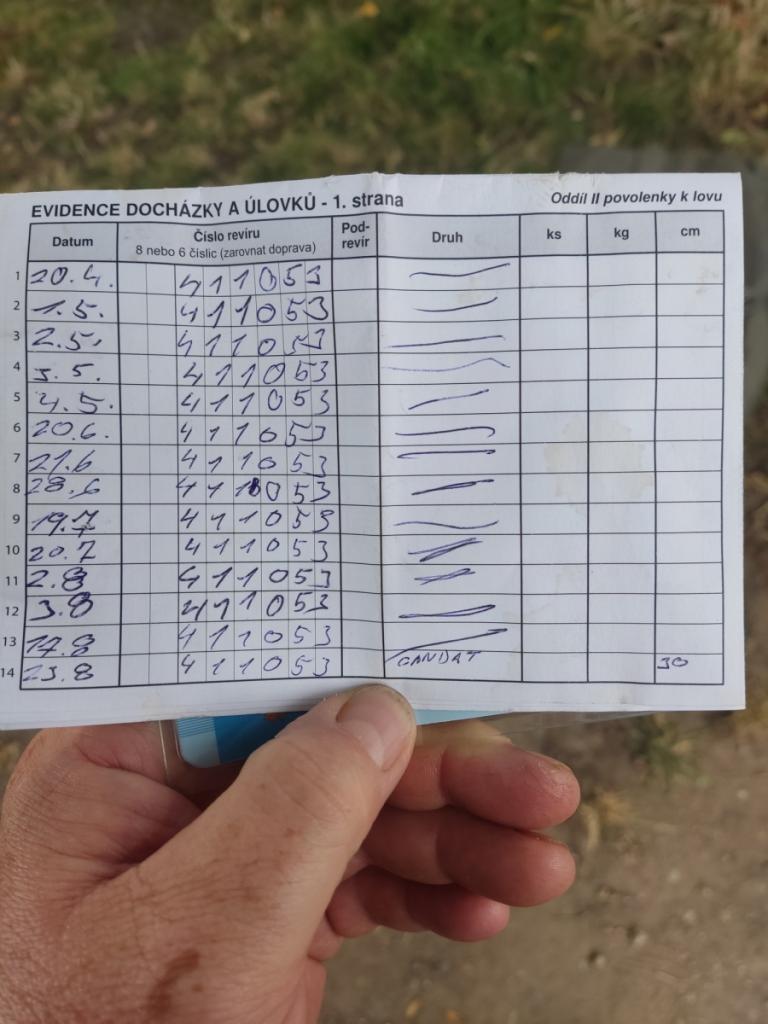 EVIDENCE DOCHÁZKY A ÚLOVKŮ - 1. strana Oddíl II povolenky k lovu
Datum Číslo revíru 8 nebo 6 číslic (zarovnat doprava) Pod-revír Druh ks kg cm
1 20.4. 411053
2 1.5. 411053
3 2.5. 411053
4 3.5. 411053
5 4.5. 411053
6 20.6. 411053
7 21.6 411053
8 28.6 411053
9 19.7 411053
10 20.7 411053
11 2.8 411053
12 3.8 411053
13 17.8 411053
14 23.8 411053 CANDAT 30